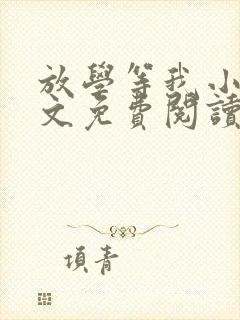 放學等我 小
文免費閱讀
項青